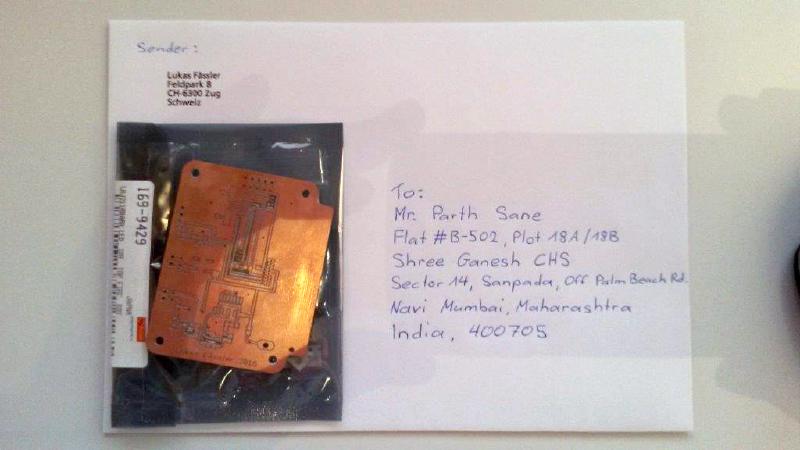 Sender:
Lukas Fässler
Feldpark 8
CH-6300 Zug
Schweiz
169-9429
To:
Mr. Parth Sane
Flat #B-502, Plot 18A/18B
Shree Ganesh CHS
Sector 14, Sanpada, Off Palm Beach Rd.
Navi Mumbai, Maharashtra
India, 400705
Lukas Fässler 2016